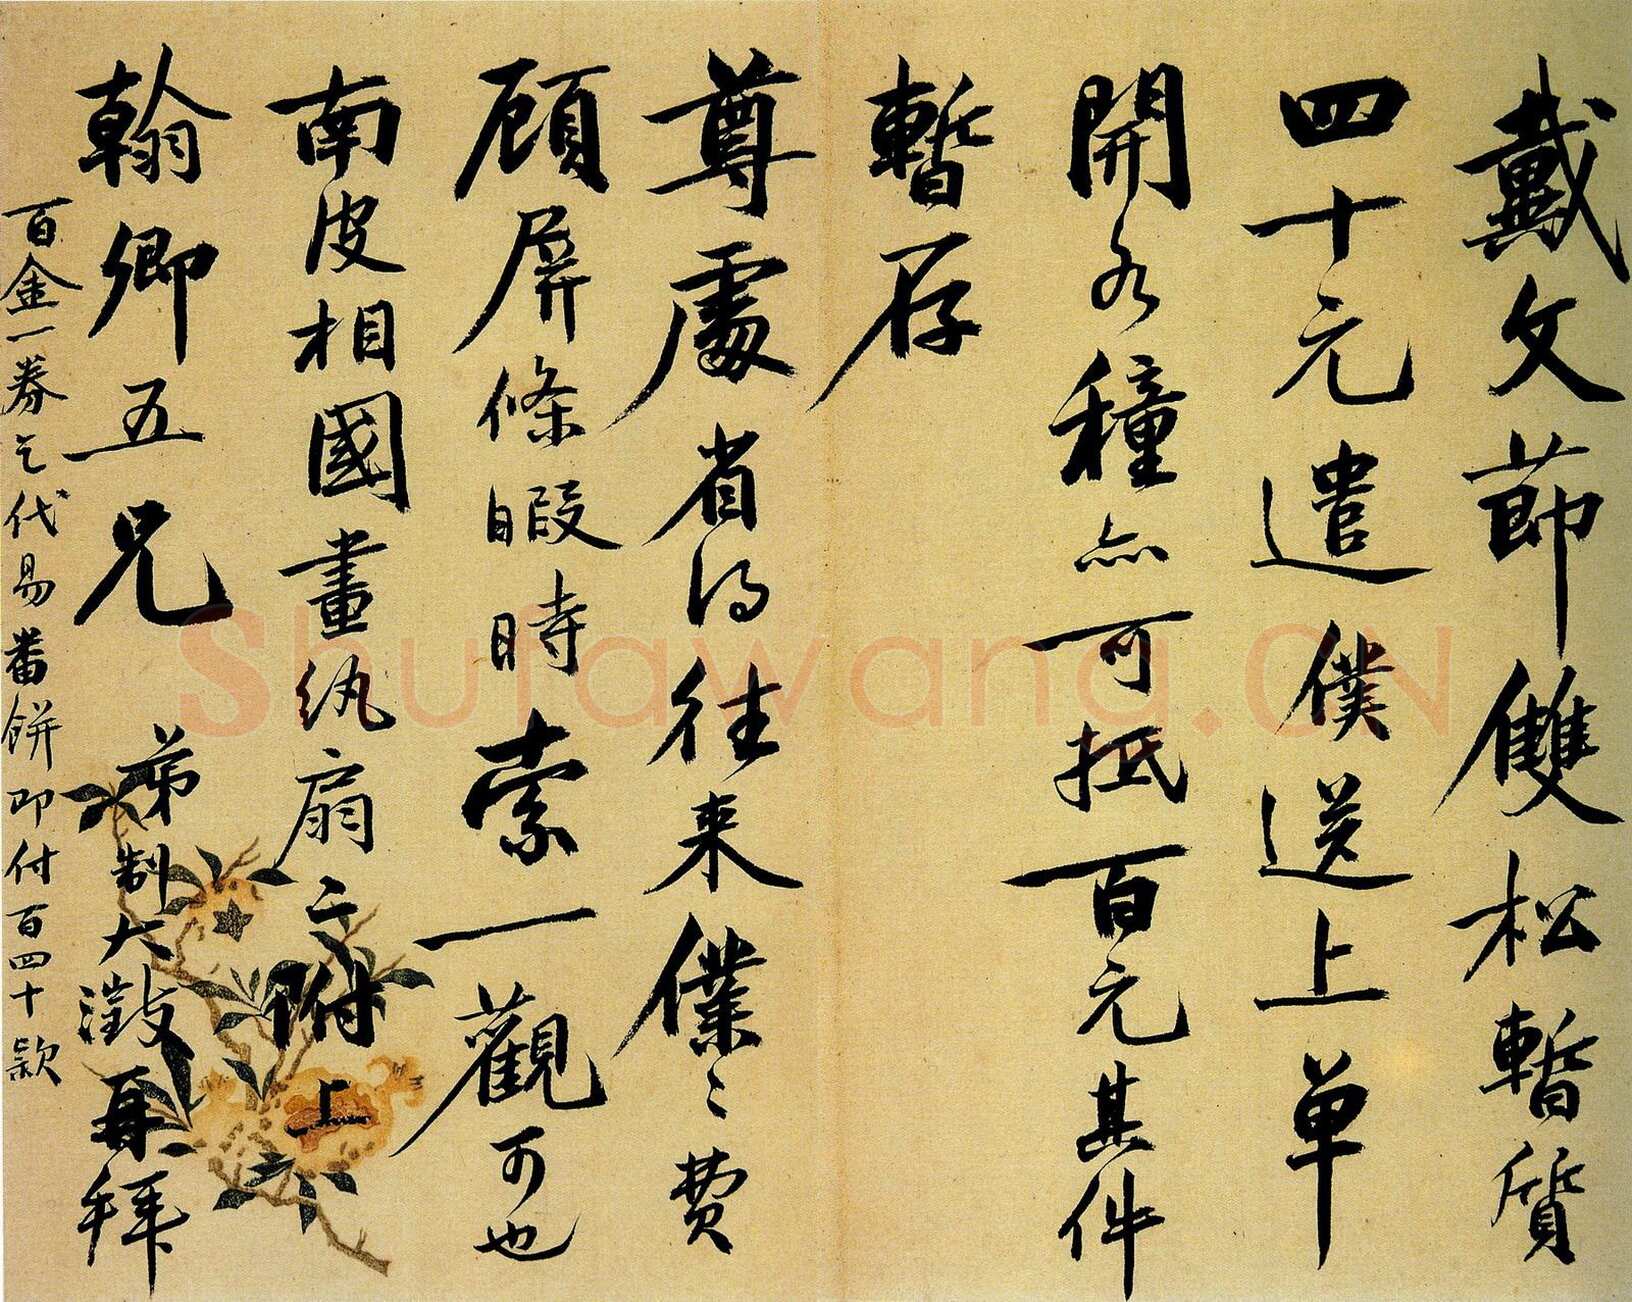 戴文節雙松暫質
四十元遣僕送上单
開各種亦可抵百元其件
暫存
尊處省得往来僕僕費
顧屏條暇時索一觀可也
南皮相國畫紈扇二附上
翰卿五兄 弟制大澂再拜
百金一券乞代易番餅即付百四十款
Shufawang.CN